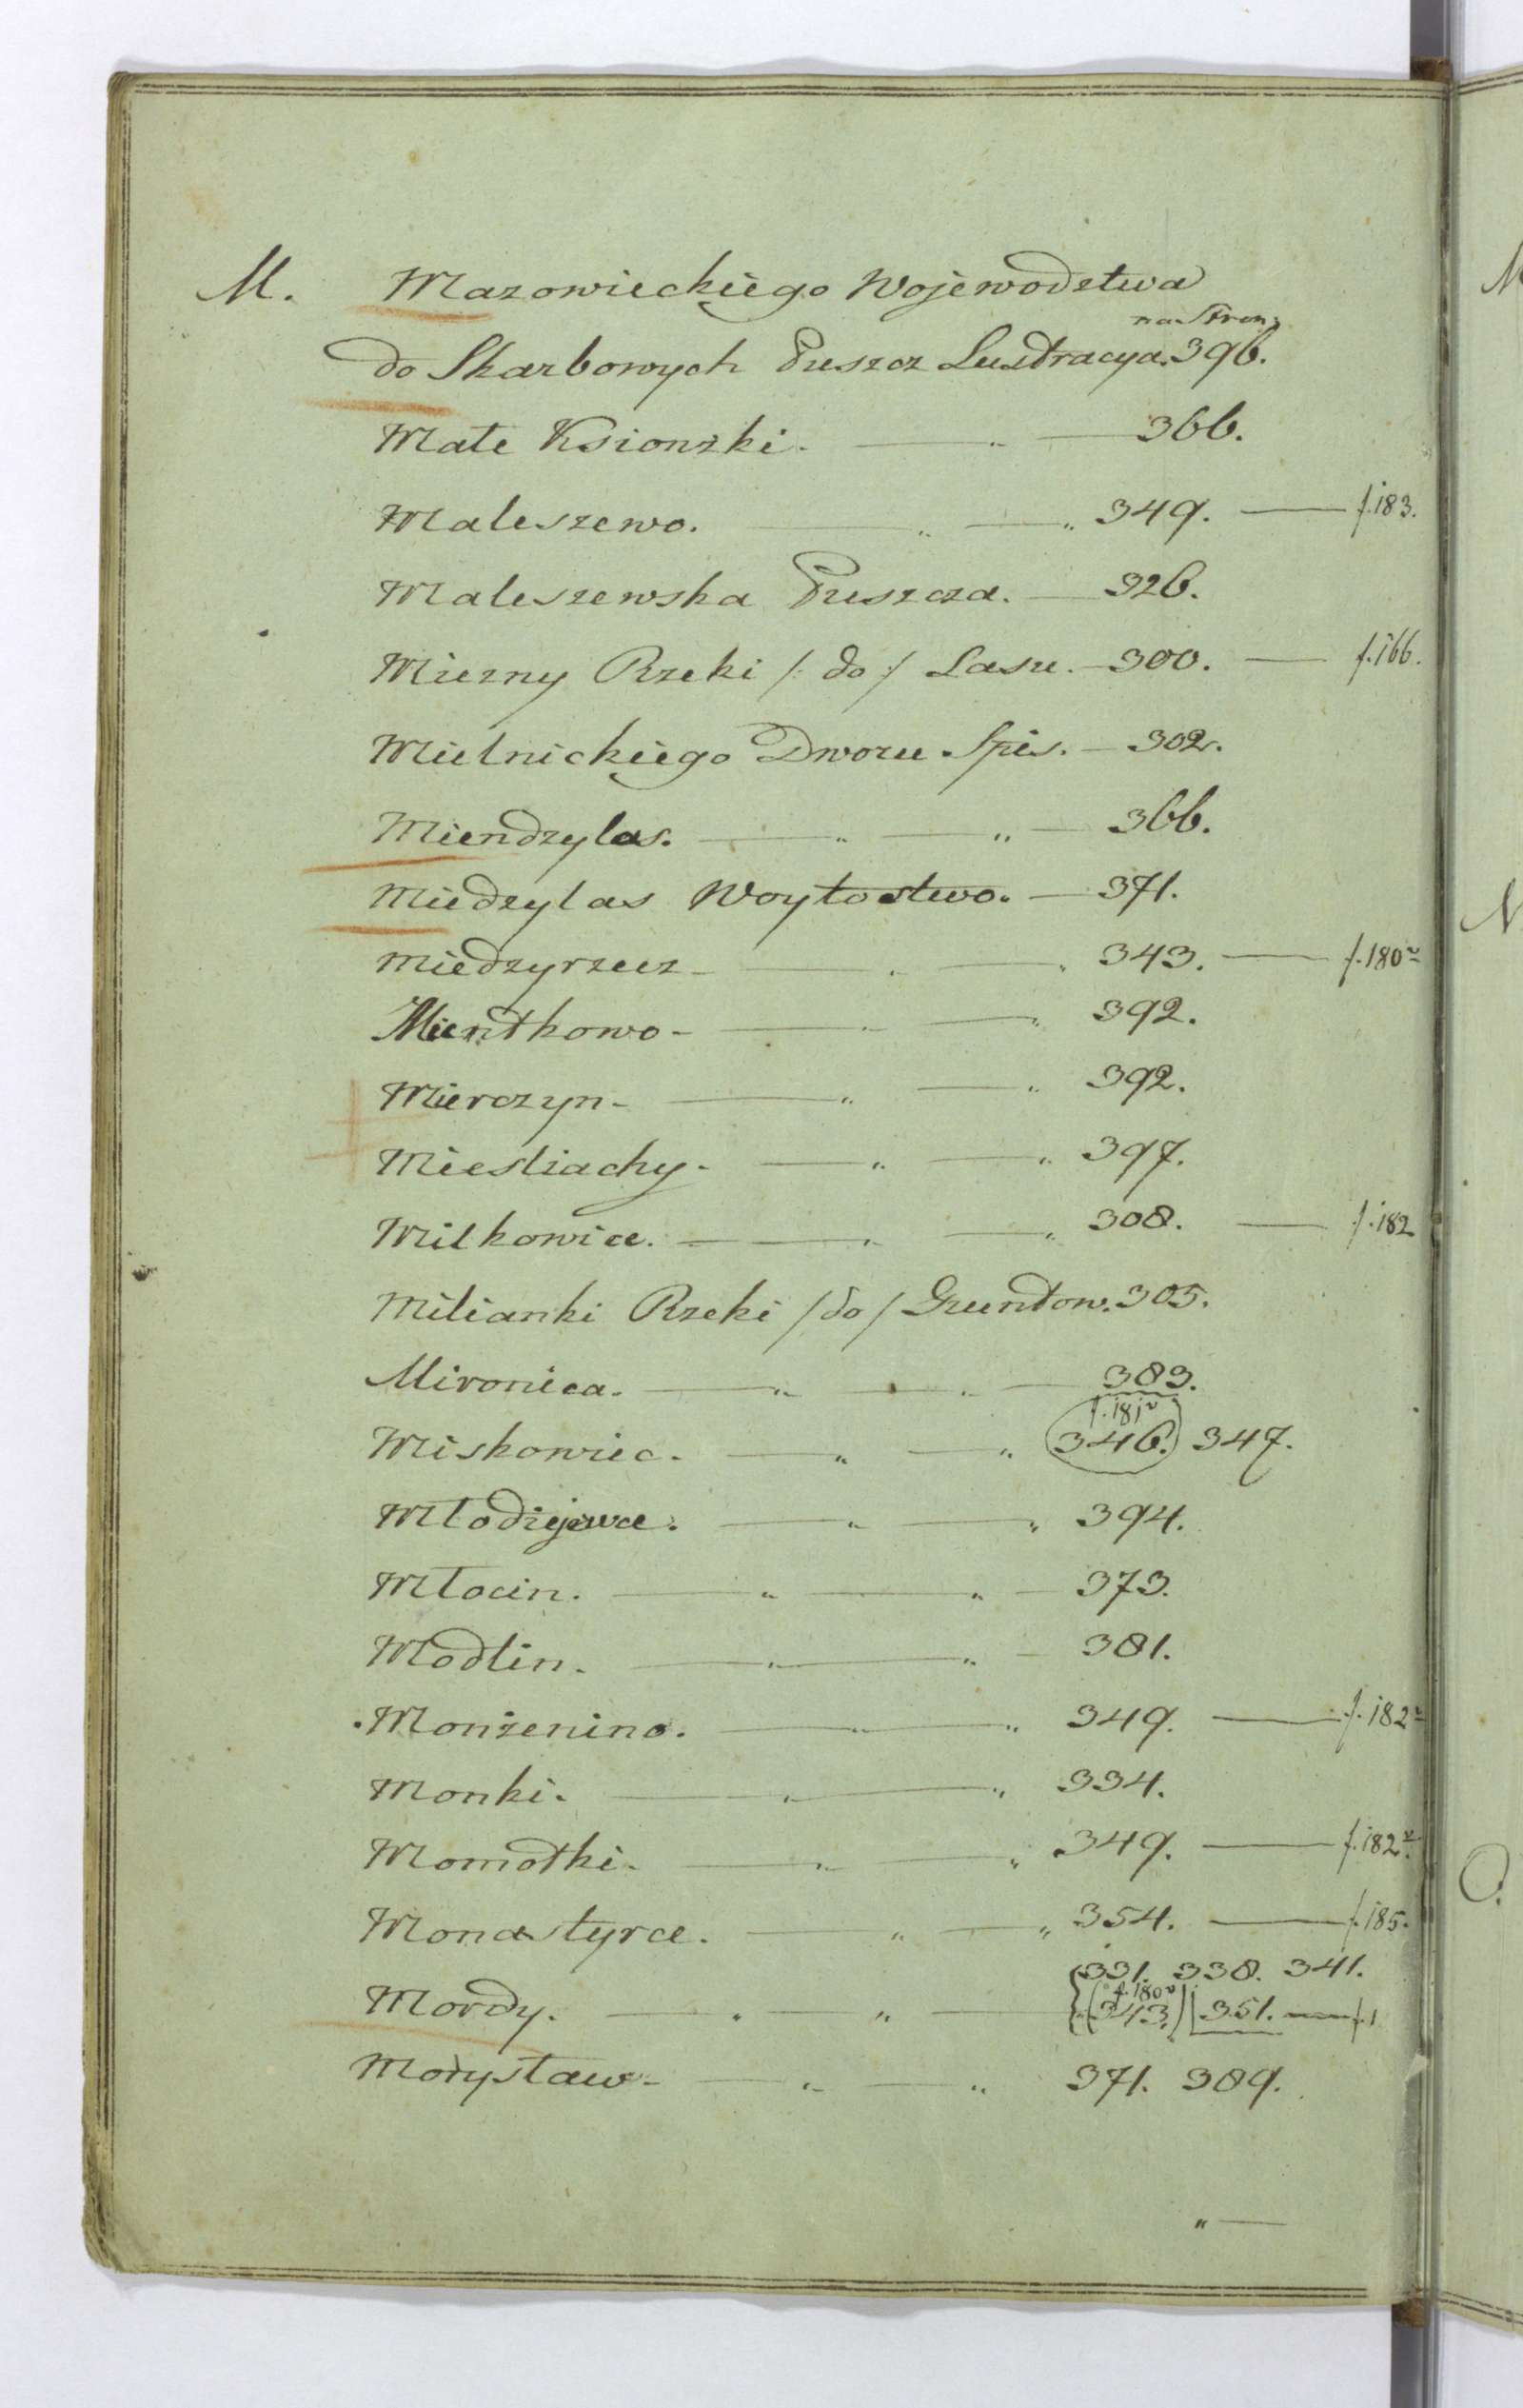 M. Mazowieckiego Wojewodztwa
na Stron:
do Skarbowych Puszcz Lustracya. 396.
Małe Ksionzki. — " — 366.
Maleszewo. — " — " 349. — f. 183.
Maleszewska Puszcza. — 326.
Mierny Rzeki /: do :/ Lasu. — 300. — f. 166.
Mielnickiego Dworu Spis. — 302.
Miendzylas. — " — " — 366.
Miedzylas Woytostwo. — 371.
Miedzyrzecz — " — " 343. — f. 180v
Mientkowo — " — " 392.
Mierczyn — " — " 392.
Miesliachy — " — " 397.
Milkowice. — " — " 308. — f. 182
Milianki Rzeki / do / Gruntow. 305.
Mironica. — " — " — 383.
f. 181v
Miskowiec. — " — " (346.) 347.
Młodiejewce. — " — " 394.
Młocin. — " — " — 373.
Modlin. — " — " — 381.
Monżenino. — " — " 349. — f. 182v
Monki. — " — " 334.
Momotki. — " — " 349. — f. 182v.
Monastyrce. — " — " 354. — f. 185.
331. 338. 341.
f. 180v
Mordy. — " — " — (343.) 351. — f. 1
Morystaw — " — " 371. 389.
" —
M
N
O.